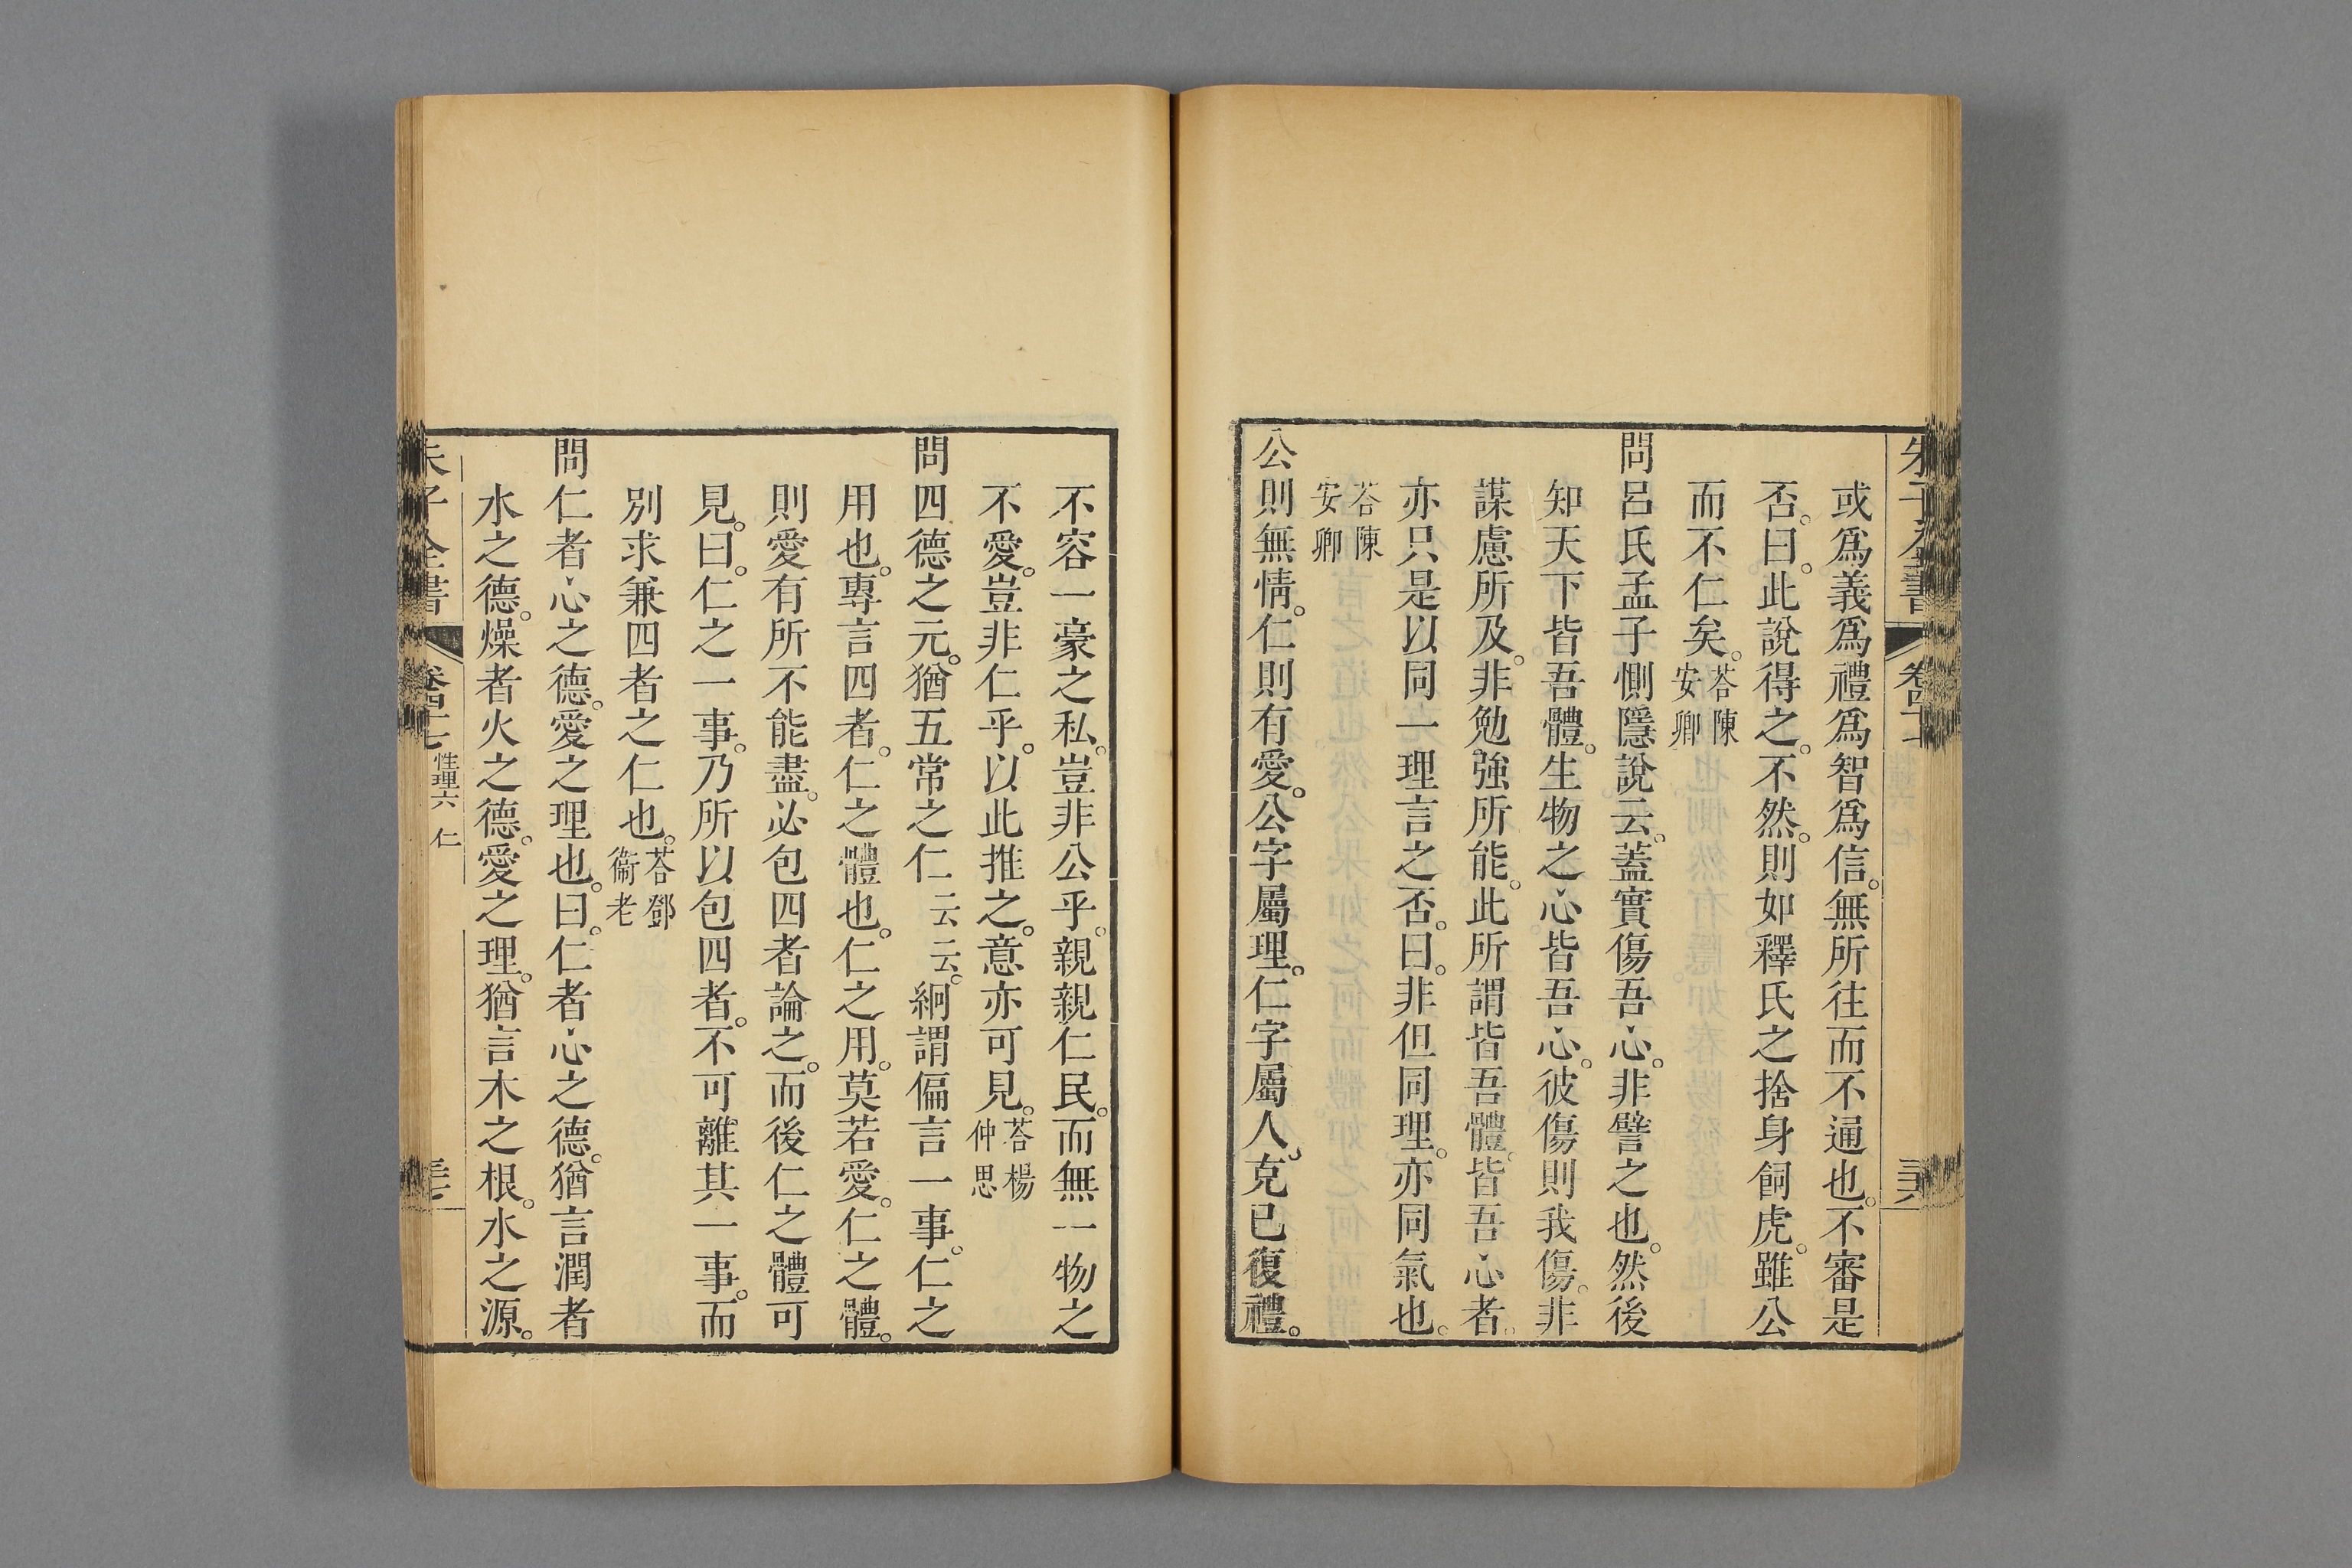 或爲義爲禮爲智爲信。無所往而不通也。不審是
否。曰。此說得之。不然。則如釋氏之捨身飼虎。雖公
而不仁矣。荅陳安卿
問呂氏孟子惻隱說云。蓋實傷吾心。非譬之也。然後
知天下皆吾體。生物之心皆吾心。彼傷則我傷。非
謀慮所及。非勉強所能。此所謂皆吾體。皆吾心者。
亦只是以同一理言之否。曰。非但同理。亦同氣也。
荅陳安卿
公則無情。仁則有愛。公字屬理。仁字屬人。克已復禮。
不容一豪之私。豈非公乎。親親仁民。而無一物之
不愛。豈非仁乎。以此推之。意亦可見。荅楊仲思
問四德之元。猶五常之仁云云。絅謂偏言一事。仁之
用也。專言四者。仁之體也。仁之用。莫若愛。仁之體。
則愛有所不能盡。必包四者論之。而後仁之體可
見。曰。仁之一事。乃所以包四者。不可離其一事。而
別求兼四者之仁也。荅鄧衞老
問仁者心之德。愛之理也。曰。仁者心之德。猶言潤者
水之德。燥者火之德。愛之理。猶言木之根。水之源。
朱子全書 卷四十七 性理六 仁